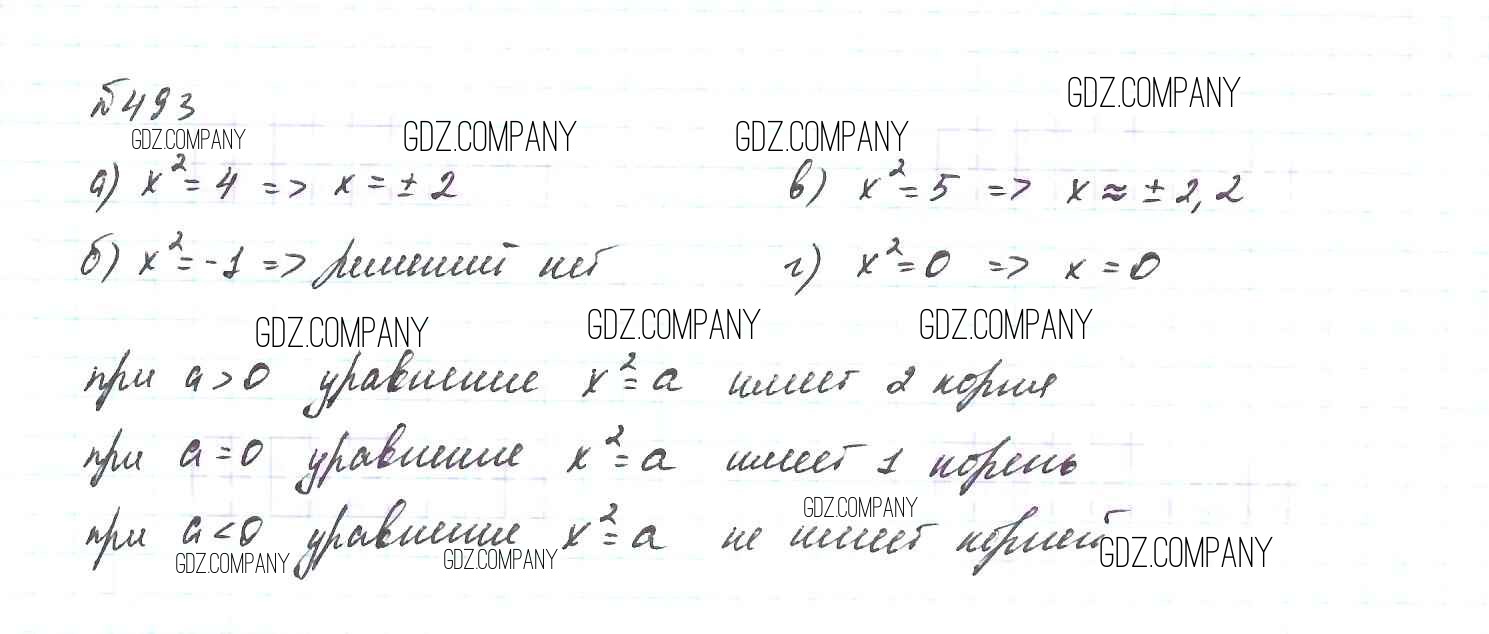 №493
GDZ.COMPANY
GDZ.COMPANY GDZ.COMPANY GDZ.COMPANY
а) x² = 4 => x = ± 2 в) x² = 5 => x ≈ ± 2,2
б) x² = -1 => решений нет г) x² = 0 => x = 0
GDZ.COMPANY GDZ.COMPANY GDZ.COMPANY
при a > 0 уравнение x² = a имеет 2 корня
при a = 0 уравнение x² = a имеет 1 корень
GDZ.COMPANY
при a < 0 уравнение x² = a не имеет корней
GDZ.COMPANY GDZ.COMPANY GDZ.COMPANY